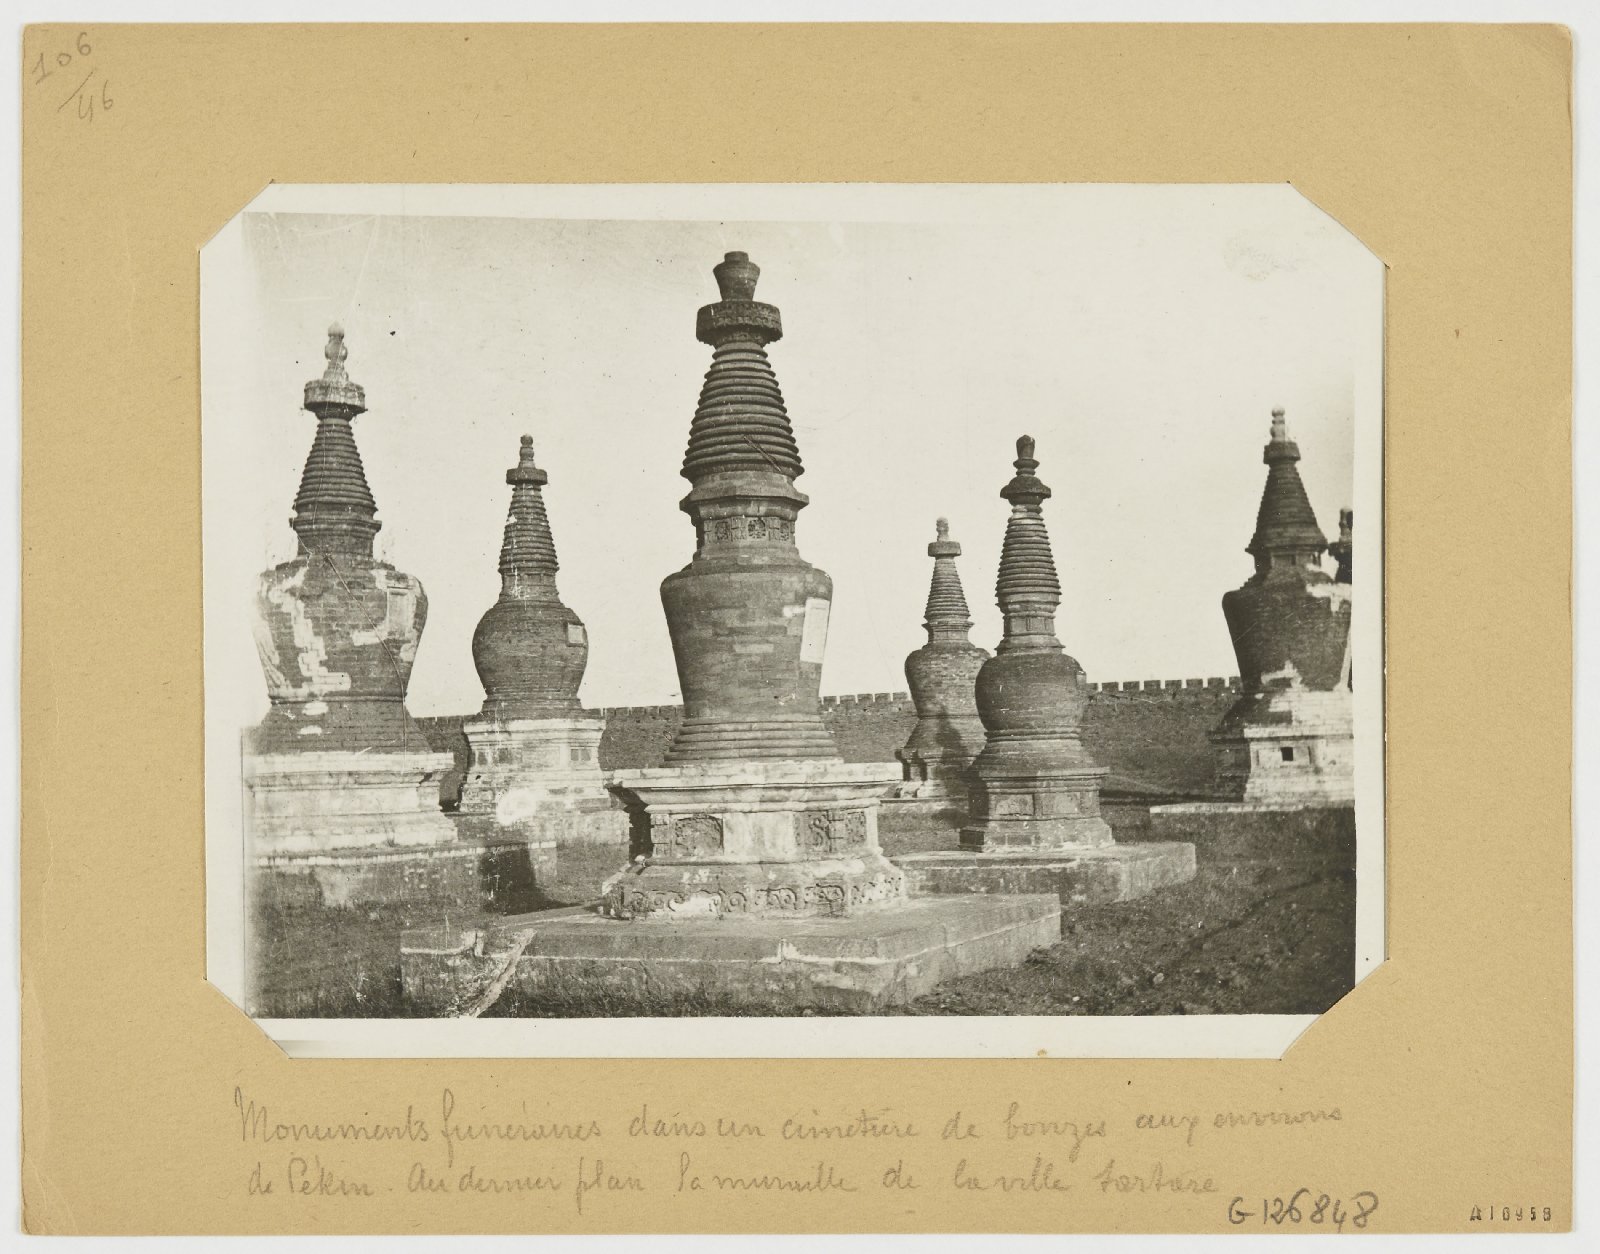 106
/46
Monuments funéraires dans un cimetière de bonzes aux environs
de Pékin. Au dernier plan la muraille de la ville tartare
G 126848
A10958